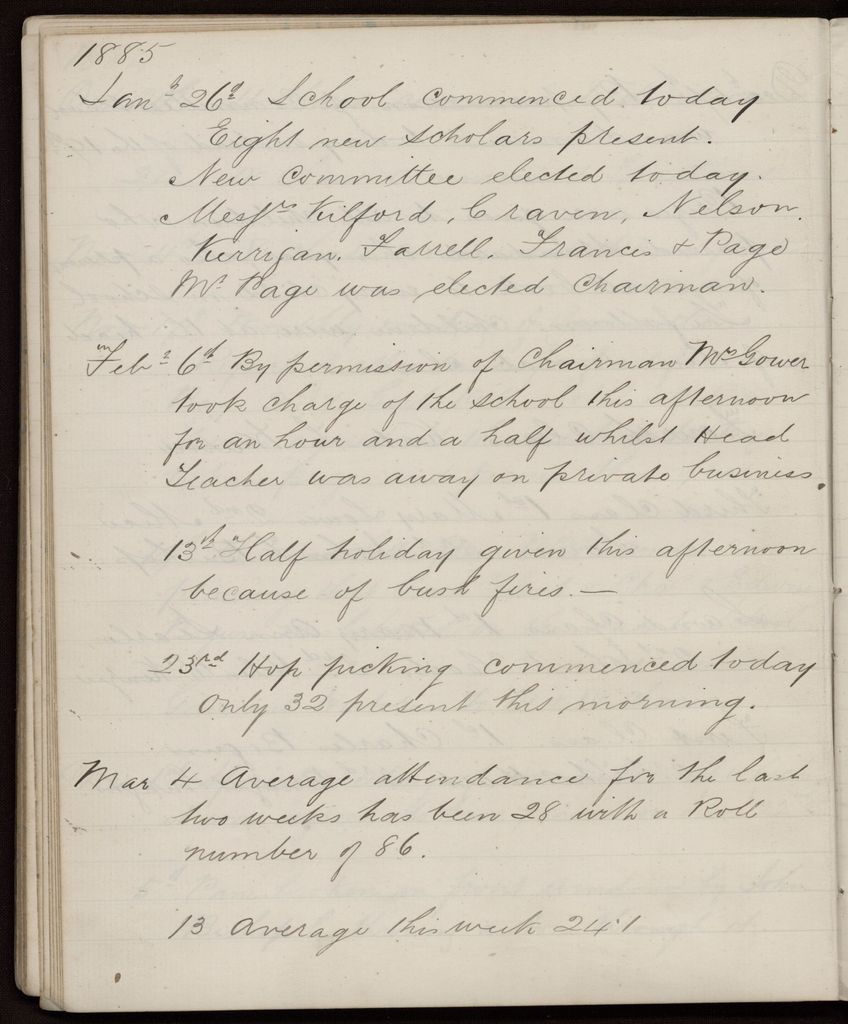 1885
Jany 26th School commenced today
Eight new scholars present.
New Committee elected today.
Messrs Kilford, Craven, Nelson,
Kerrigan, Farrell, Francis & Page
Mr Page was elected Chairman.
Feby 6th By permission of Chairman Mrs Gower
took charge of the school this afternoon
for an hour and a half whilst Head
Teacher was away on private business.
13th Half holiday given this afternoon
because of bush fires. —
23rd Hop picking commenced today
Only 32 present this morning.
Mar 4 Average attendance for the last
two weeks has been 28 with a Roll
number of 86.
13 Average this week 24·1